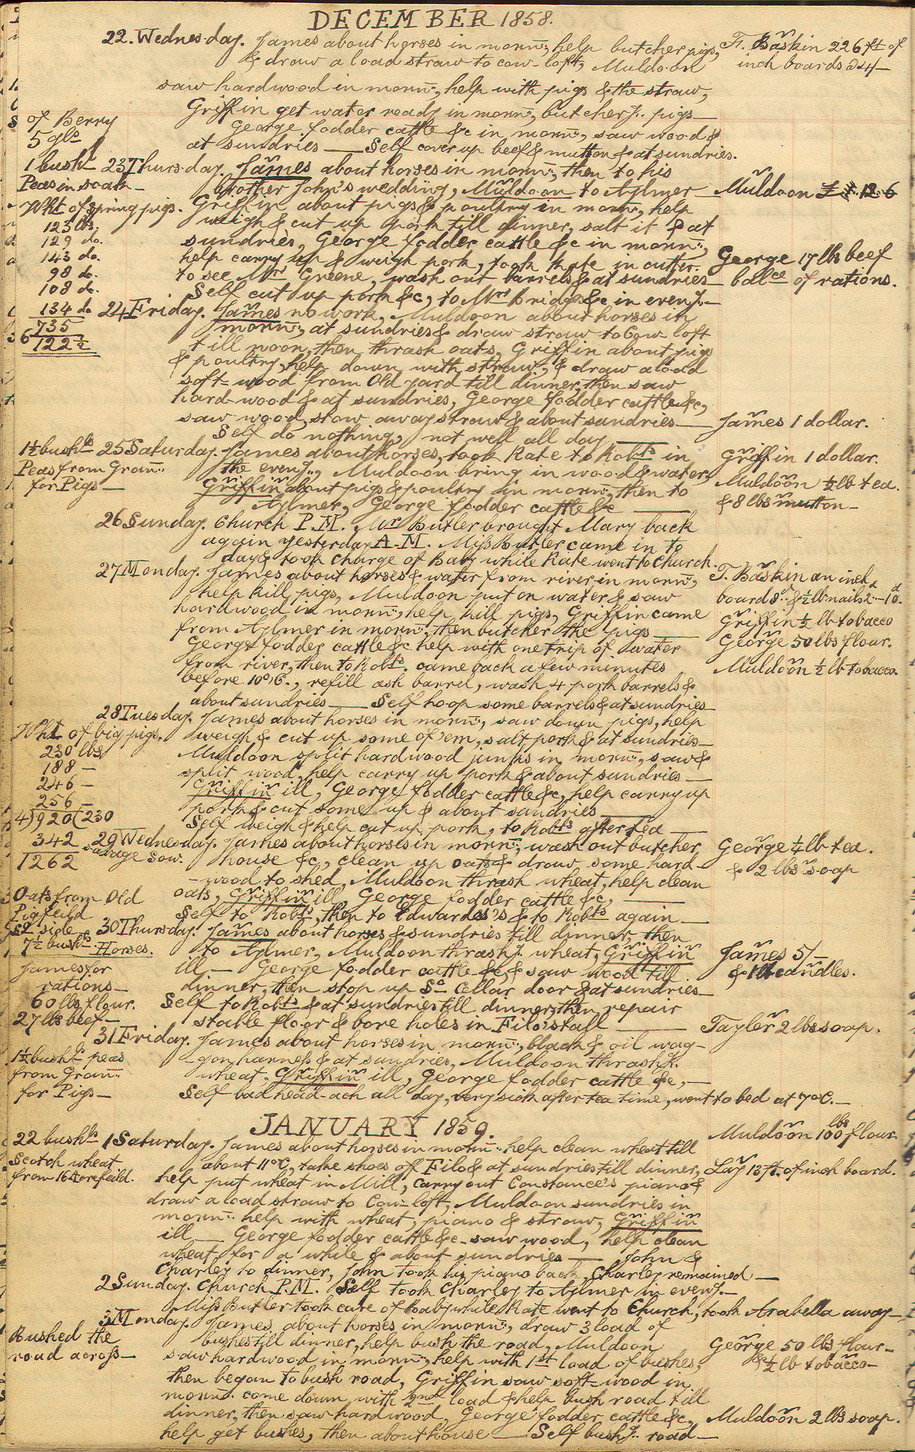 DECEMBER 1858.
22. Wednesday. James about horses in morng, help butcher pigs,
& draw a load straw to cow-loft, Muldoon
T. Baskin 226 ft of
inch boards
saw hardwood in morng, help with pigs & the straw,
Griffin get water ready in morng, butcherg. pigs—
of Berry
5 gls
George fodder cattle &c in morng, saw wood &
at sundries — Self cover up beef & mutton & at sundries.
1 bushl
Peas in soak—
23 Thursday. James about horses in morng, then to his
brother John's wedding, Muldoon to Aylmer
Muldoon £ 12.6
Wht of Spring pigs.
123 lbs.
129 do.
143 do.
98 do.
108 do.
134 do
735
6
122½
Griffin about pigs & poultry in morng, help
weigh & cut up pork till dinner, salt it & at
sundries, George fodder cattle &c in morng,
help carry up & weigh pork, took Kate in cutter
to see Mrs Greene, wash out barrels & at sundries—
Self cut up pork &c, to Mr Bridges &c in eveng.—
George 17 lbs beef
ballce of rations.
24 Friday. James no work, Muldoon about horses in
morng, at sundries & draw straw to Cow loft
till noon, then thrash oats, Griffin about pigs
& poultry, help down with straw, & draw a load
soft-wood from Old yard till dinner, then saw
hard-wood & at sundries, George fodder cattle &c,
saw wood, stow away straw & about sundries—
Self do nothing, not well all day —
James 1 dollar.
1½ bushls
Peas from Gran:
for Pigs—
25 Saturday. James about horses, took Kate to Robts in
the eveng., Muldoon bring in wood & water,
Griffin about pigs & poultry in morng, then to
Aylmer, George fodder cattle &c —
Griffin 1 dollar.
Muldoon ½ lb tea.
& 8 lbs mutton—
26 Sunday. Church P.M. Mr Butler brought Mary back
again yesterday A.M. Miss Butler came in to
day & took charge of Baby while Kate went to Church.
27 Monday. James about horses & water from river in morng,
help kill pigs, Muldoon put on water & saw
hardwood in morng, help kill pigs, Griffin came
from Aylmer in morng, then butcher the pigs—
George fodder cattle & help with one trip of water
from river, then to Robts, came back a few minutes
before 10 oC., refill ash barrel, wash 4 pork barrels &
about sundries — Self hoop some barrels & at sundries—
T. Baskin an inch
board & ½ lb nails
Griffin ½ lb tobacco
George 50 lbs flour.
Muldoon ½ lb tobacco.
28 Tuesday. James about horses in morng, saw down pigs, help
weigh & cut up some of 'em, salt pork & at sundries—
Muldoon split hardwood junks in morng, saw &
split wood, help carry up pork & about sundries—
Griffin ill, George fodder cattle &c, help carry up
pork & cut some up & about sundries —
Self weigh & help cut up pork, to Robts after tea —
Wht of big pigs.
230 lbs
188 —
246 —
256 —
4)920(230
342
1262
29 Wednesday. James about horses in morng, wash out butcher
house &c, clean up oats & draw some hard
-wood to shed, Muldoon thrash wheat, help clean
oats, Griffin ill, George fodder cattle &c, —
Self to Robts, then to Edwardes's & to Robts again —
George ½ lb tea.
& 2 lbs soap
Oats from Old
Pigfeild
So side
7½ bushls Horses.
30 Thursday. James about horses & sundries till dinner then
to Aylmer, Muldoon thrashg. wheat, Griffin
ill,— George fodder cattle &c & saw wood till
dinner, then stop up So Cellar door & at sundries—
Self to Robts & at sundries till dinner, then repair
stable floor & bore holes in Filo's stall —
James 5/-
& 1 lb candles.
James for
rations—
60 lbs flour.
27 lbs beef—
Taylor 2 lbs soap.
31 Friday. James about horses in morng, black & oil wag-
gon harness & at sundries, Muldoon thrashg.
wheat. Griffin ill, George fodder cattle &c,—
Self bad head-ach all day, very sick after tea time, went to bed at 7 oC.—
1½ bushls peas
from Gran:
for Pigs—
JANUARY 1859.
22 bushls
Scotch wheat
from 16 Acrefeild.
1 Saturday. James about horses in morng. help clean wheat till
about 11 oC, take shoes of Filo & at sundries till dinner,
help put wheat in Mill, carry out Constance's piano &
draw a load straw to Cow-loft, Muldoon sundries in
morng. help with wheat, piano & straw, Griffin
ill — George fodder cattle &c, saw wood, help clean
wheat for a while & about sundries — John &
Charley to dinner, John took his piano back, Charley remained —
Muldoon 100 lbs flour.
Lay 13 ft. of inch board.
2 Sunday. Church P.M. Self took Charley to Aylmer in eveng.—
Miss Butler took care of baby while Kate went to Church, took Arabella away—
3 Monday. James, about horses in morng, draw 3 load of
bushes till dinner, help bush the road, Muldoon
saw hardwood in morng, help with 1st load of bushes,
then began to bush road, Griffin saw soft-wood in
morng. come down with 2nd load & help bush road till
dinner, then saw hardwood, George fodder, cattle &c,
help get bushes, then about house — Self bushg. road—
Bushed the
road across—
George 50 lbs flour—
& ½ lb tobacco—
Muldoon 2 lbs soap.